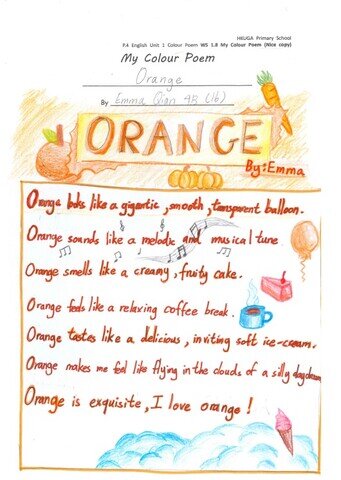 HKUGA Primary School
P.4 English Unit 1 Colour Poem WS 1.8 My Colour Poem (Nice copy)
My Colour Poem
Orange
By Emma Qian 4K (16)
ORANGE
By:Emma
Orange looks like a gigantic, smooth, transparent balloon.
Orange sounds like a melodic and musical tune
Orange smells like a creamy, fruity cake.
Orange feels like a relaxing coffee break.
Orange tastes like a delicious, inviting soft ice-cream.
Orange makes me feel like flying in the clouds of a silly daydream
Orange is exquisite, I love orange!